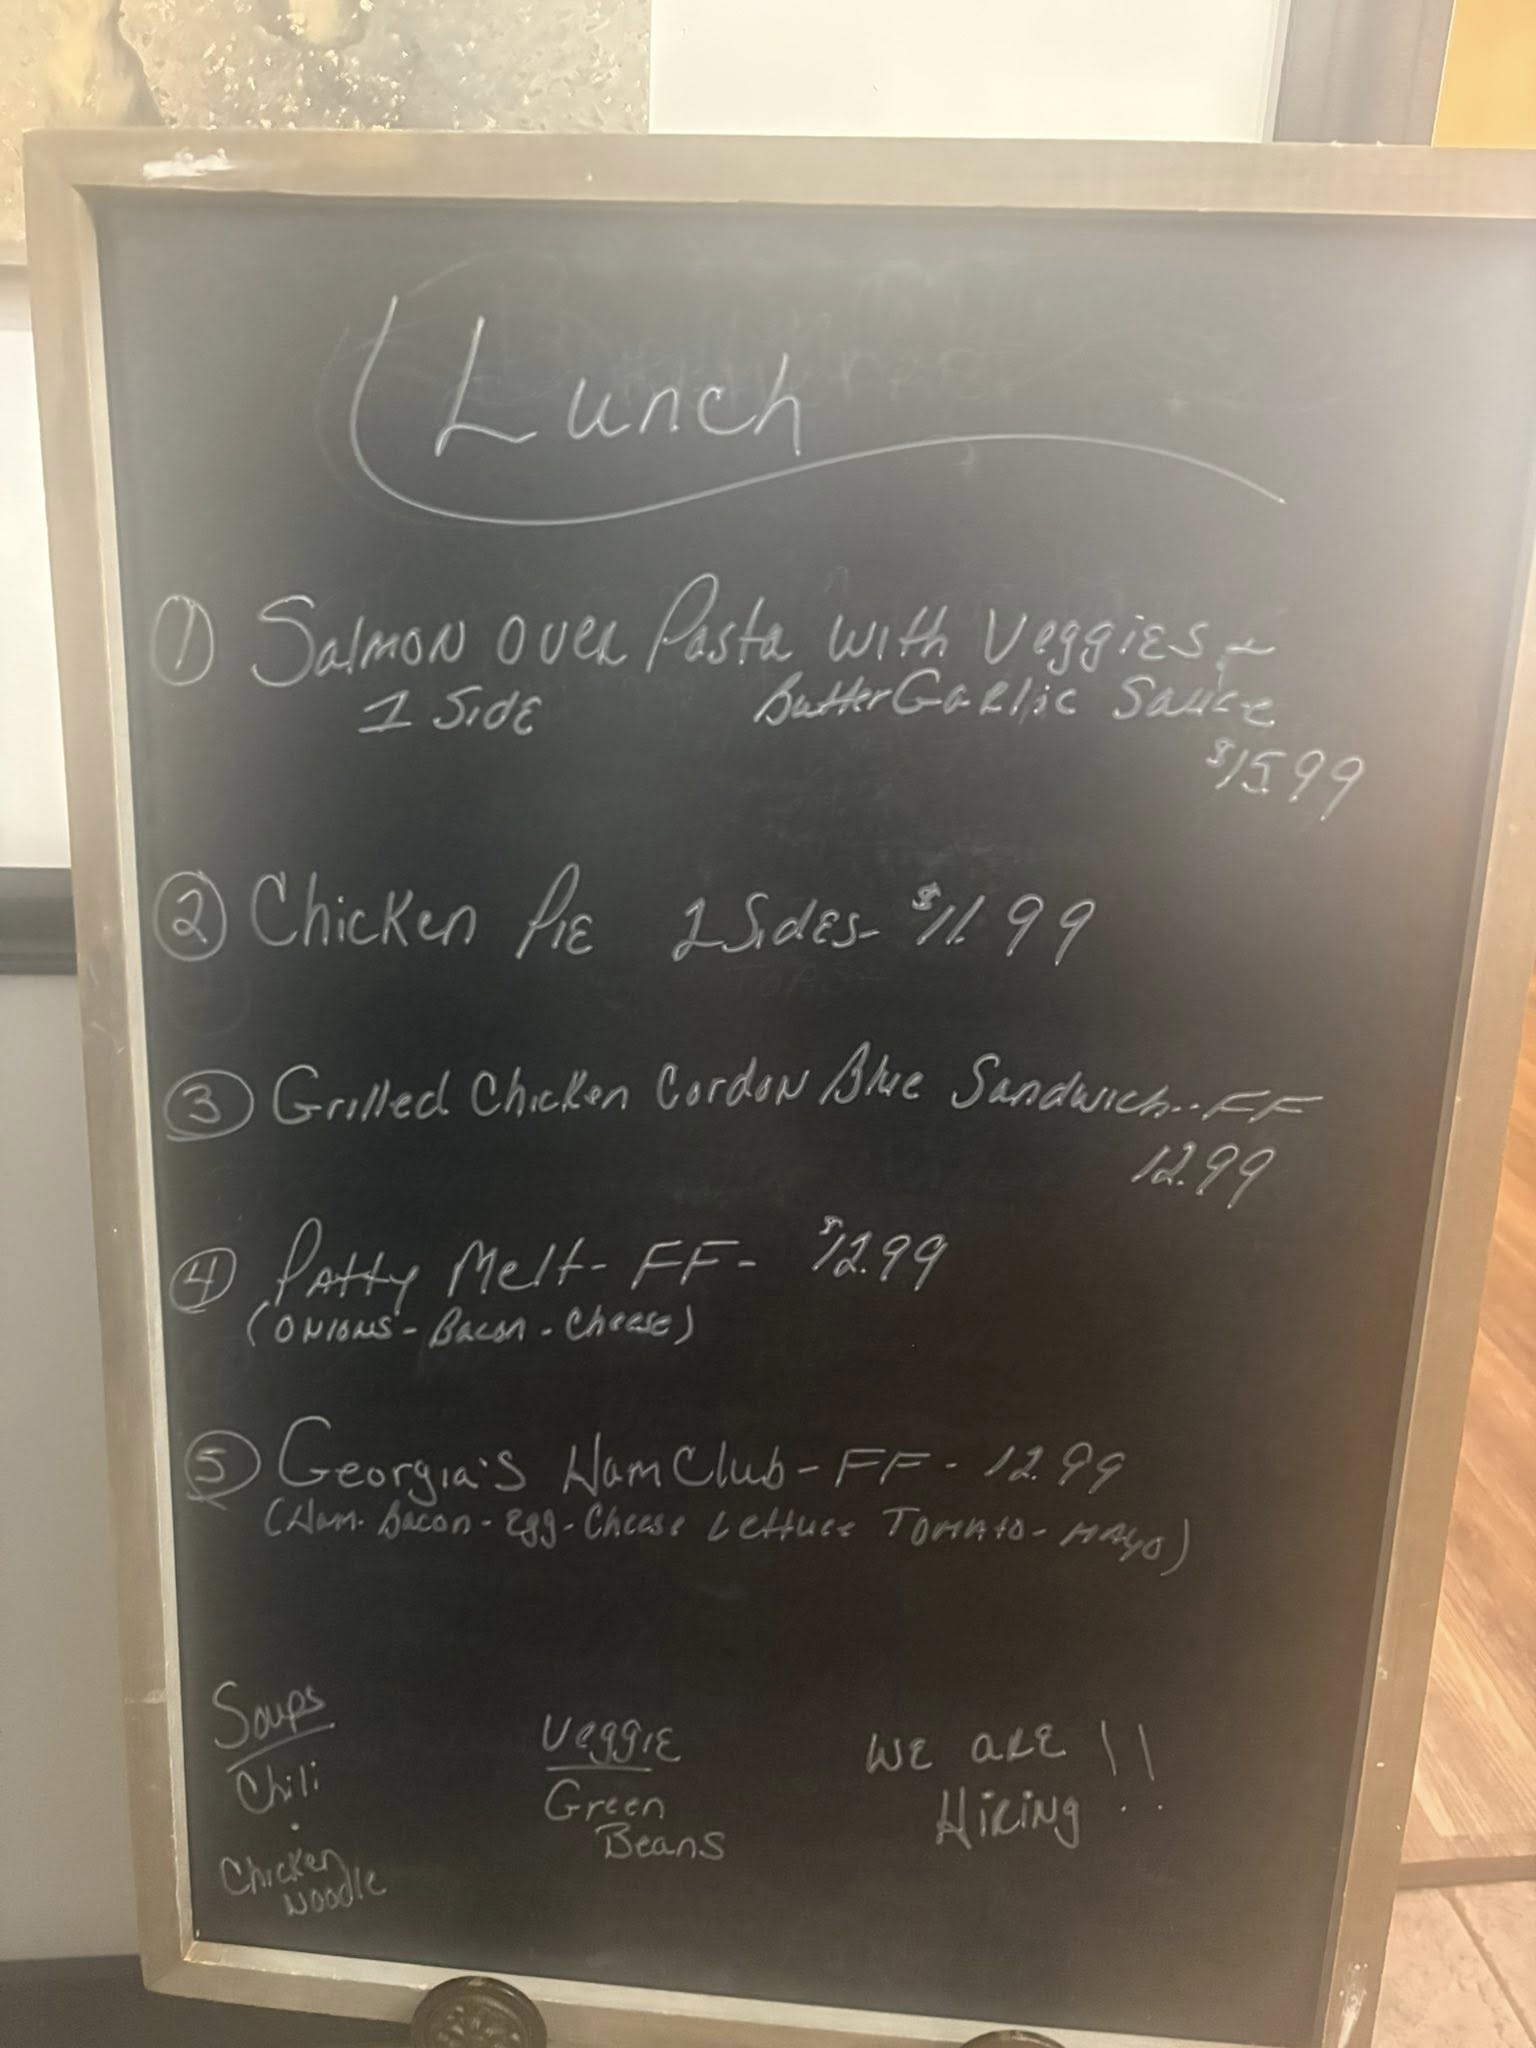 Lunch
① Salmon over Pasta with Veggies +
1 Side Butter Garlic Sauce
$15.99
② Chicken Pie 2 Sides - $11.99
③ Grilled Chicken Cordon Blue Sandwich..FF
12.99
④ Patty Melt - FF - $12.99
(Onions - Bacon - Cheese)
⑤ Georgia's Ham Club - FF - 12.99
(Ham - Bacon - Egg - Cheese Lettuce Tomato - Mayo)
Soups
Chili
.
Chicken
Noodle
Veggie
Green
Beans
We are !!
Hiring